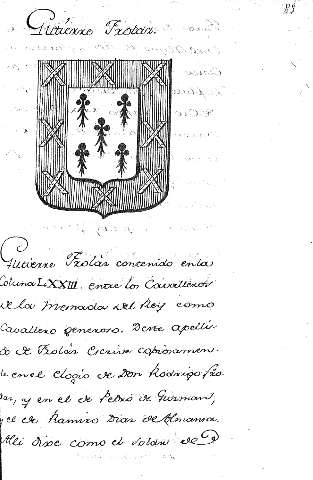 Gutierre Frolàz.
Gutierre Frolàz contenido en la
Coluna LXXIII. entre los Cavalleros
de la Mesnada del Rey como
Cavallero generoso. Deste apelli-
do de Frolàz escrive copiosamen-
te en el elogio de Don Rodrigo Fro-
laz, y en el de Pedro de Guzman,
y el de Ramiro Diaz de Almanza.
Alli dixe como el solar de D